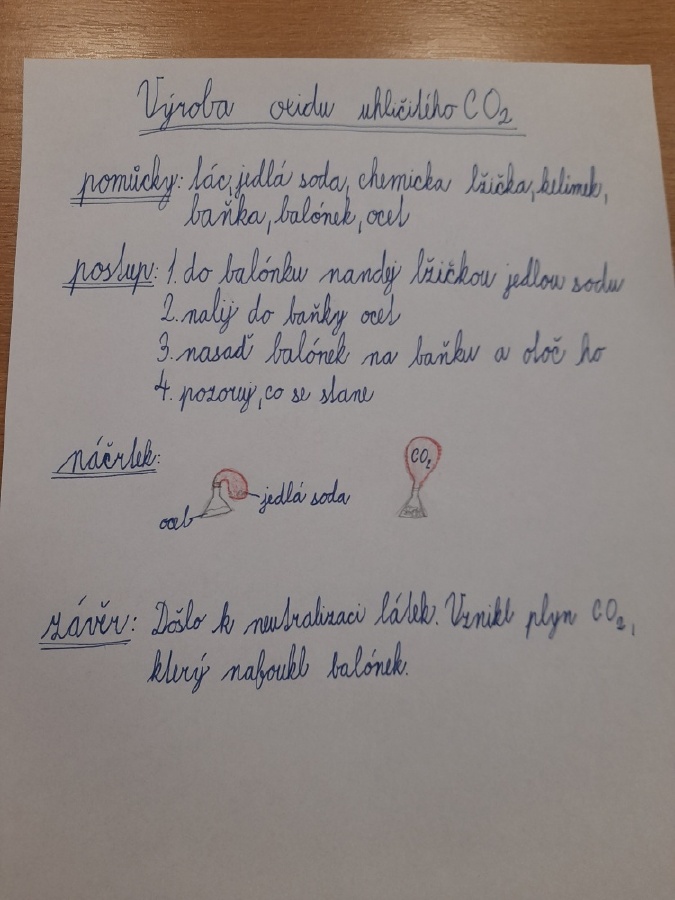 Výroba oxidu uhličitého CO₂
pomůcky: tác, jedlá soda, chemicka lžička, kelimek,
baňka, balónek, ocet
postup: 1. do balónku nandej lžičkou jedlou sodu
2. nalij do baňky ocet
3. nasaď balónek na baňku a otoč ho
4. pozoruj, co se stane
náčrtek:
CO₂
jedlá soda
ocet
závěr: Došlo k neutralizaci látek. Vznikl plyn CO₂,
který nafoukl balónek.